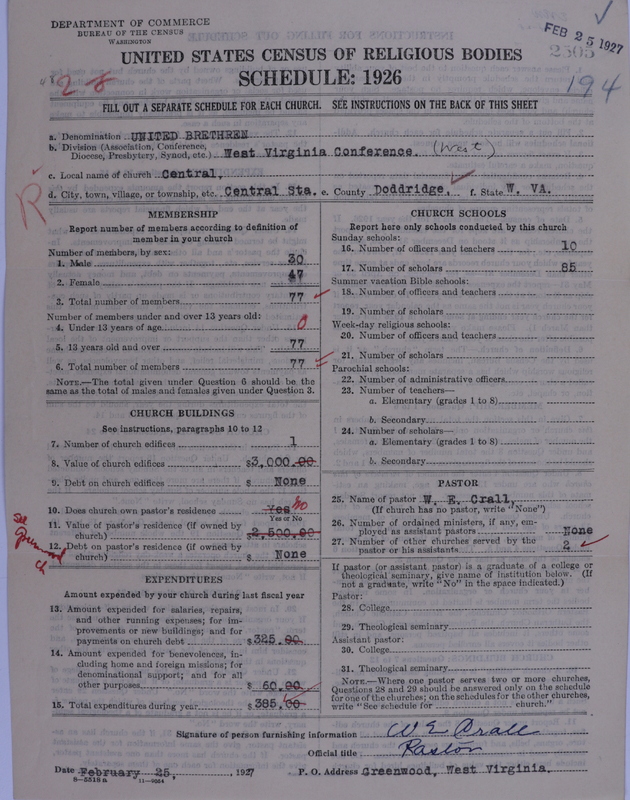 DEPARTMENT OF COMMERCE
BUREAU OF THE CENSUS
WASHINGTON
FEB 25 1927
2505
194
UNITED STATES CENSUS OF RELIGIOUS BODIES
SCHEDULE: 1926
FILL OUT A SEPARATE SCHEDULE FOR EACH CHURCH. SEE INSTRUCTIONS ON THE BACK OF THIS SHEET
a. Denomination UNITED BRETHREN
b. Division (Association, Conference, Diocese, Presbytery, Synod, etc.) West Virginia Conference. (West)
c. Local name of church Central,
d. City, town, village, or township, etc. Central Sta. e. County Doddridge, f. State W. VA.
MEMBERSHIP
Report number of members according to definition of
member in your church
Number of members, by sex:
1. Male 30
2. Female 47
3. Total number of members 77
Number of members under and over 13 years old:
4. Under 13 years of age 0
5. 13 years old and over 77
6. Total number of members 77
NOTE.—The total given under Question 6 should be the
same as the total of males and females given under Question 3.
CHURCH BUILDINGS
See instructions, paragraphs 10 to 12
7. Number of church edifices 1
8. Value of church edifices $3,000.00
9. Debt on church edifices $ None
10. Does church own pastor's residence Yes No
Yes or No
11. Value of pastor's residence (if owned by
church) $2,500.00
12. Debt on pastor's residence (if owned by
church) $ None
See
Greenwood
ch
EXPENDITURES
Amount expended by your church during last fiscal year
13. Amount expended for salaries, repairs,
and other running expenses; for im-
provements or new buildings; and for
payments on church debt $325.00
14. Amount expended for benevolences, in-
cluding home and foreign missions; for
denominational support; and for all
other purposes $ 60.00
15. Total expenditures during year $385.00
CHURCH SCHOOLS
Report here only schools conducted by this church
Sunday schools:
16. Number of officers and teachers 10
17. Number of scholars 85
Summer vacation Bible schools:
18. Number of officers and teachers
19. Number of scholars
Week-day religious schools:
20. Number of officers and teachers
21. Number of scholars
Parochial schools:
22. Number of administrative officers
23. Number of teachers—
a. Elementary (grades 1 to 8)
b. Secondary
24. Number of scholars—
a. Elementary (grades 1 to 8)
b. Secondary
PASTOR
25. Name of pastor W. E. Crall,
(If church has no pastor, write "None")
26. Number of ordained ministers, if any, em-
ployed as assistant pastors None
27. Number of other churches served by the
pastor or his assistants 2
If pastor (or assistant pastor) is a graduate of a college or
theological seminary, give name of institution below. (If
not a graduate, write "No" in the space indicated.)
Pastor:
28. College
29. Theological seminary
Assistant pastor:
30. College
31. Theological seminary
NOTE.—Where one pastor serves two or more churches,
Questions 28 and 29 should be answered only on the schedule
for one of the churches; on the schedules for the other churches,
write "See schedule for ........ church."
Signature of person furnishing information W E Crall
Official title Pastor
Date February 25, 1927 P. O. Address Greenwood, West Virginia.
8-5518a 11-9064